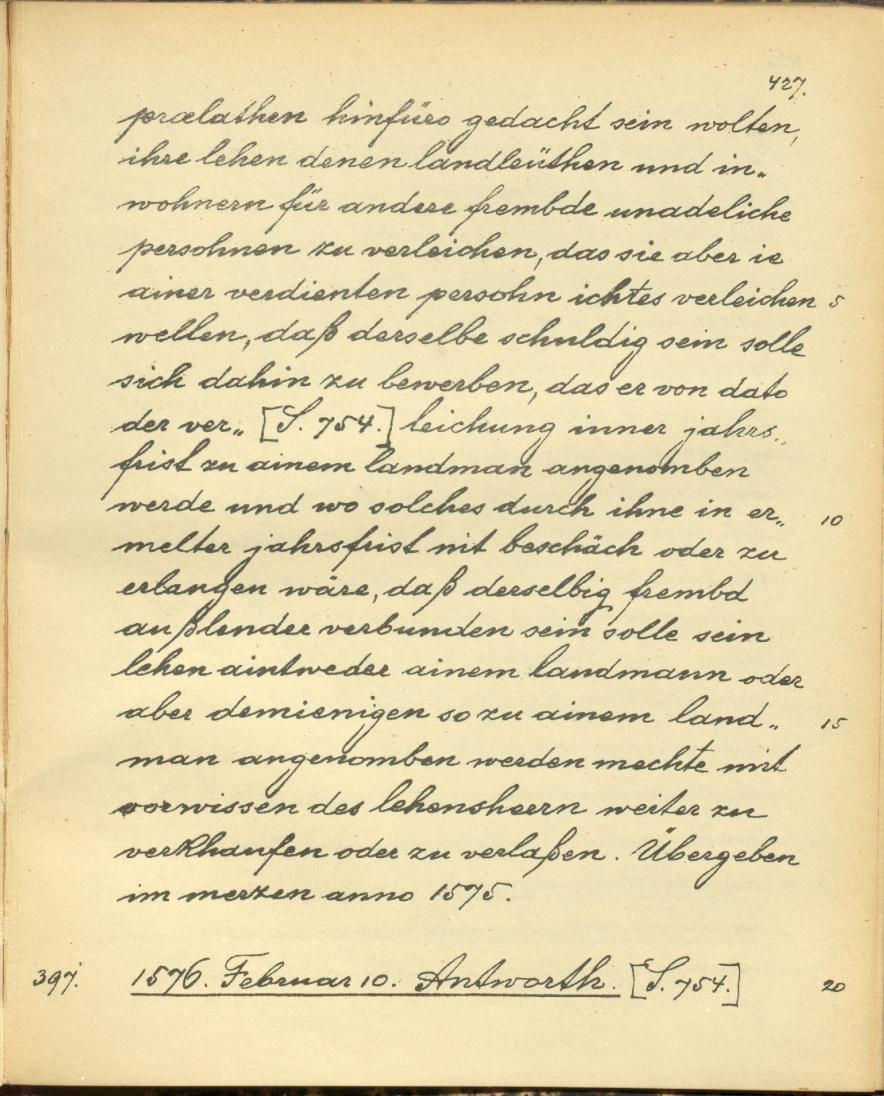 427.
prælathen hinfüro gedacht sein wolten,
ihre lehen denen landleüthen und in„
wohnern für andere frembde unadeliche
persohnen zu verleichen, das sie aber ie
ainer verdienten persohn ichtes verleichen 5
wellen, daß derselbe schuldig sein solle
sich dahin zu bewerben, das er von dato
der ver„ [S. 754.] leichung inner jahrs„
frist zu ainem landman angenomben
werde und wo solches durch ihne in er„ 10
melter jahrsfrist nit beschäch oder zu
erlangen wäre, daß derselbig frembd
außlender verbunden sein solle sein
lehen aintweder ainem landmann oder
aber demienigen so zu ainem land„ 15
man angenomben werden mechte mit
vorwissen des lehensherrn weiter zu
verkhaufen oder zu verlaßen. Übergeben
im merzen anno 1575.
397. 1576. Februar 10. Antworth. [S. 754.] 20